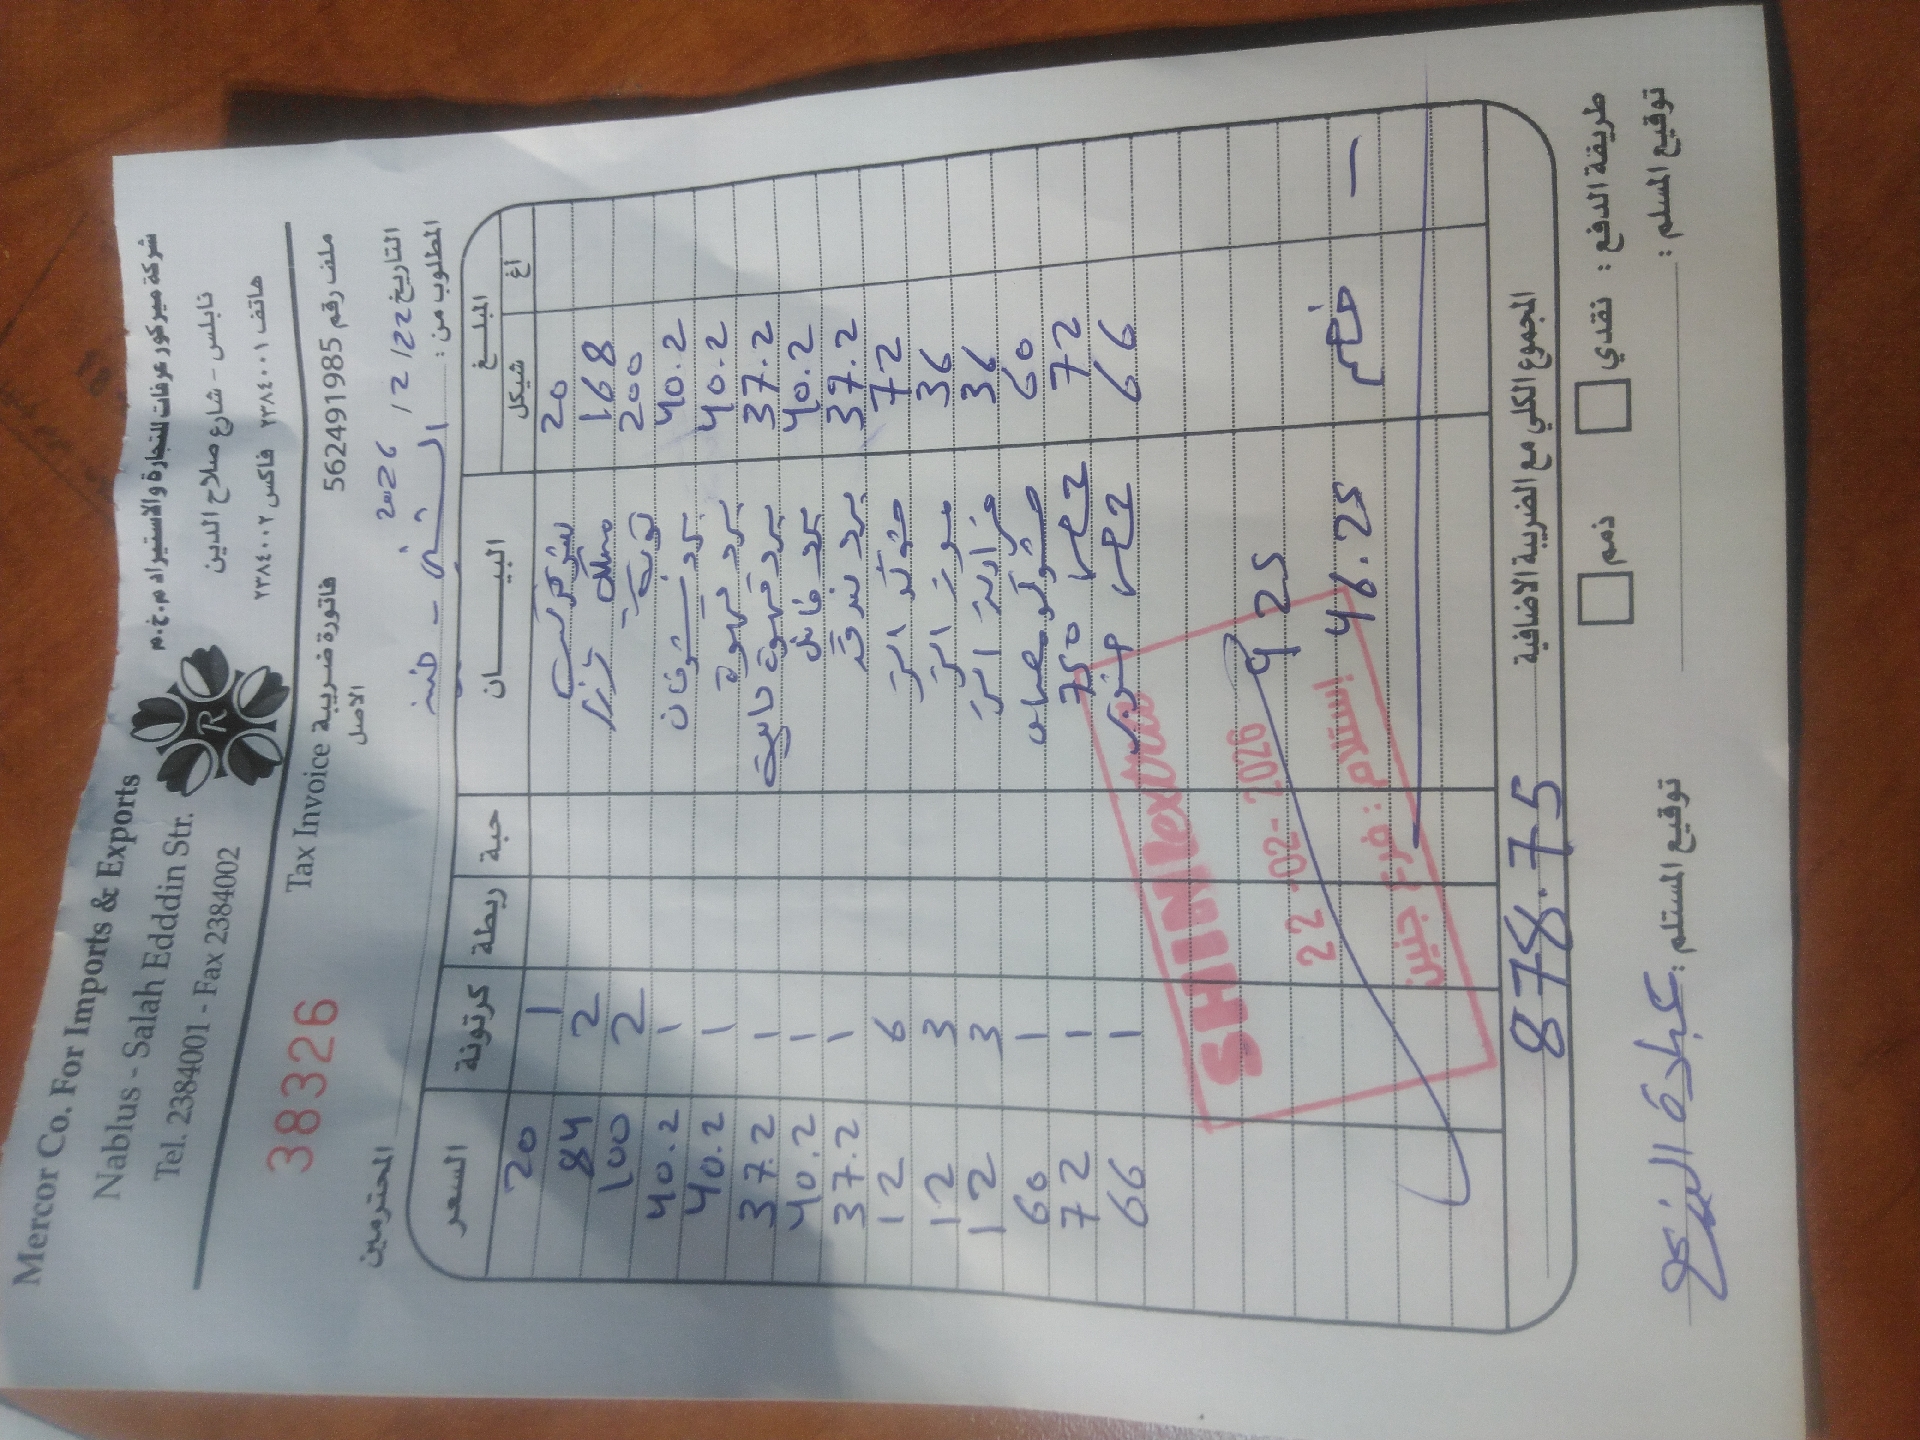 Mercor Co. For Imports & Exports
Nablus - Salah Edddin Str.
Tel. 2384001 - Fax 2384002
شركة ميركور عرفات للتجارة والاستيراد م.خ.م
نابلس - شارع صلاح الدين
هاتف ٢٣٨٤٠٠١ فاكس ٢٣٨٤٠٠٢
R
38326
Tax Invoice فاتورة ضريبية
الاصل
ملف رقم 562491985
التاريخ 22/2/ 2026
المطلوب من :
المحترمين
السعر كرتونة ربطة حبة البيـــــان المبلـــغ
شيكل اغ
20 1 20
84 2 168
100 2 200
40.2 1 40.2
40.2 1 برد قهوة 40.2
37.2 1 برد قهوة 37.2
40.2 1 برد 40.2
37.2 1 برد بندق 37.2
12 6 72
12 3 36
12 3 36
60 1 60
72 1 750 72
66 1 66
925
46.25 خصم —
SHINI extra
22 -02- 2026
إستلام : فرع جنين
المجموع الكلي مع الضريبة الاضافية 878.75
طريقة الدفع : نقدي ذمم
توقيع المسلم :
توقيع المستلم : عبادة